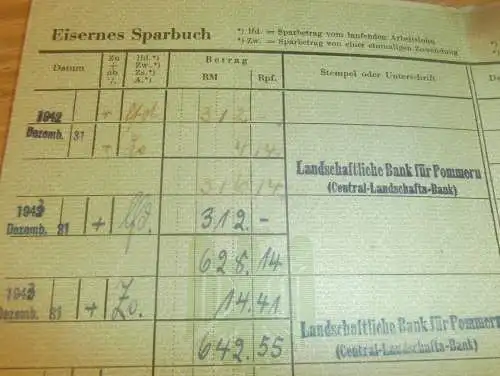 Eisernes Sparbuch
*) lfd. = Sparbetrag vom laufenden Arbeitslohn
*) Zw. = Sparbetrag von einer einmaligen Zuwendung
Datum Zu + ab ./. lfd.*) Zw.*) Zs.*) A.*) Betrag RM Rpf. Stempel oder Unterschrift
1942 Dezemb. 31 + 312 -
+ 4 14
316 14
Landschaftliche Bank für Pommern
(Central-Landschafts-Bank)
1943 Dezemb. 31 + lfd. 312. -
628. 14
1943 Dezemb. 31 + Zs. 14. 41
642. 55
Landschaftliche Bank für Pommern
(Central-Landschafts-Bank)